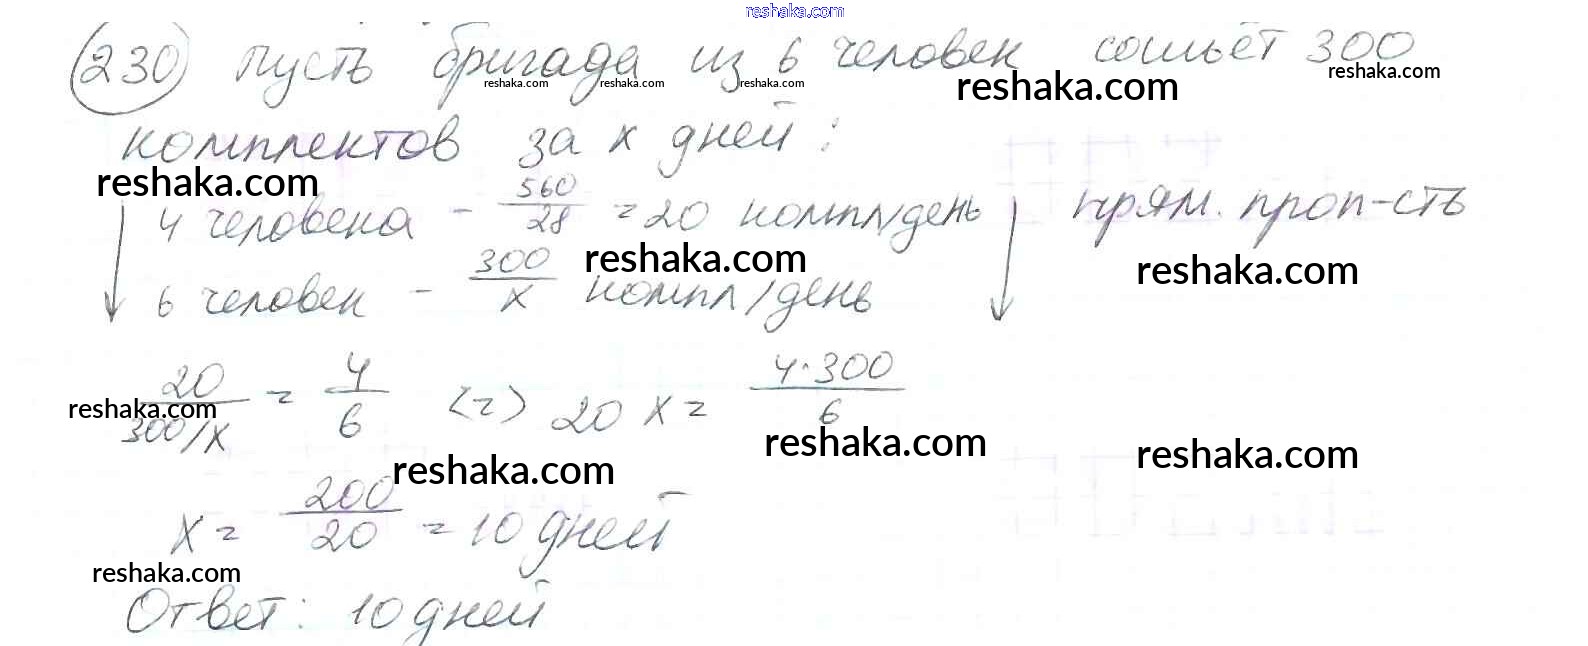 reshaka.com
230 Пусть бригада из 6 человек сошьёт 300
reshaka.com reshaka.com reshaka.com reshaka.com reshaka.com
комплектов за x дней:
reshaka.com
4 человека - 560/28 = 20 компл/день прям. проп-сть
reshaka.com reshaka.com
6 человек - 300/x компл/день
20/(300/x) = 4/6 <=> 20x = 4·300/6
reshaka.com reshaka.com reshaka.com
reshaka.com
x = 200/20 = 10 дней
reshaka.com
Ответ: 10 дней